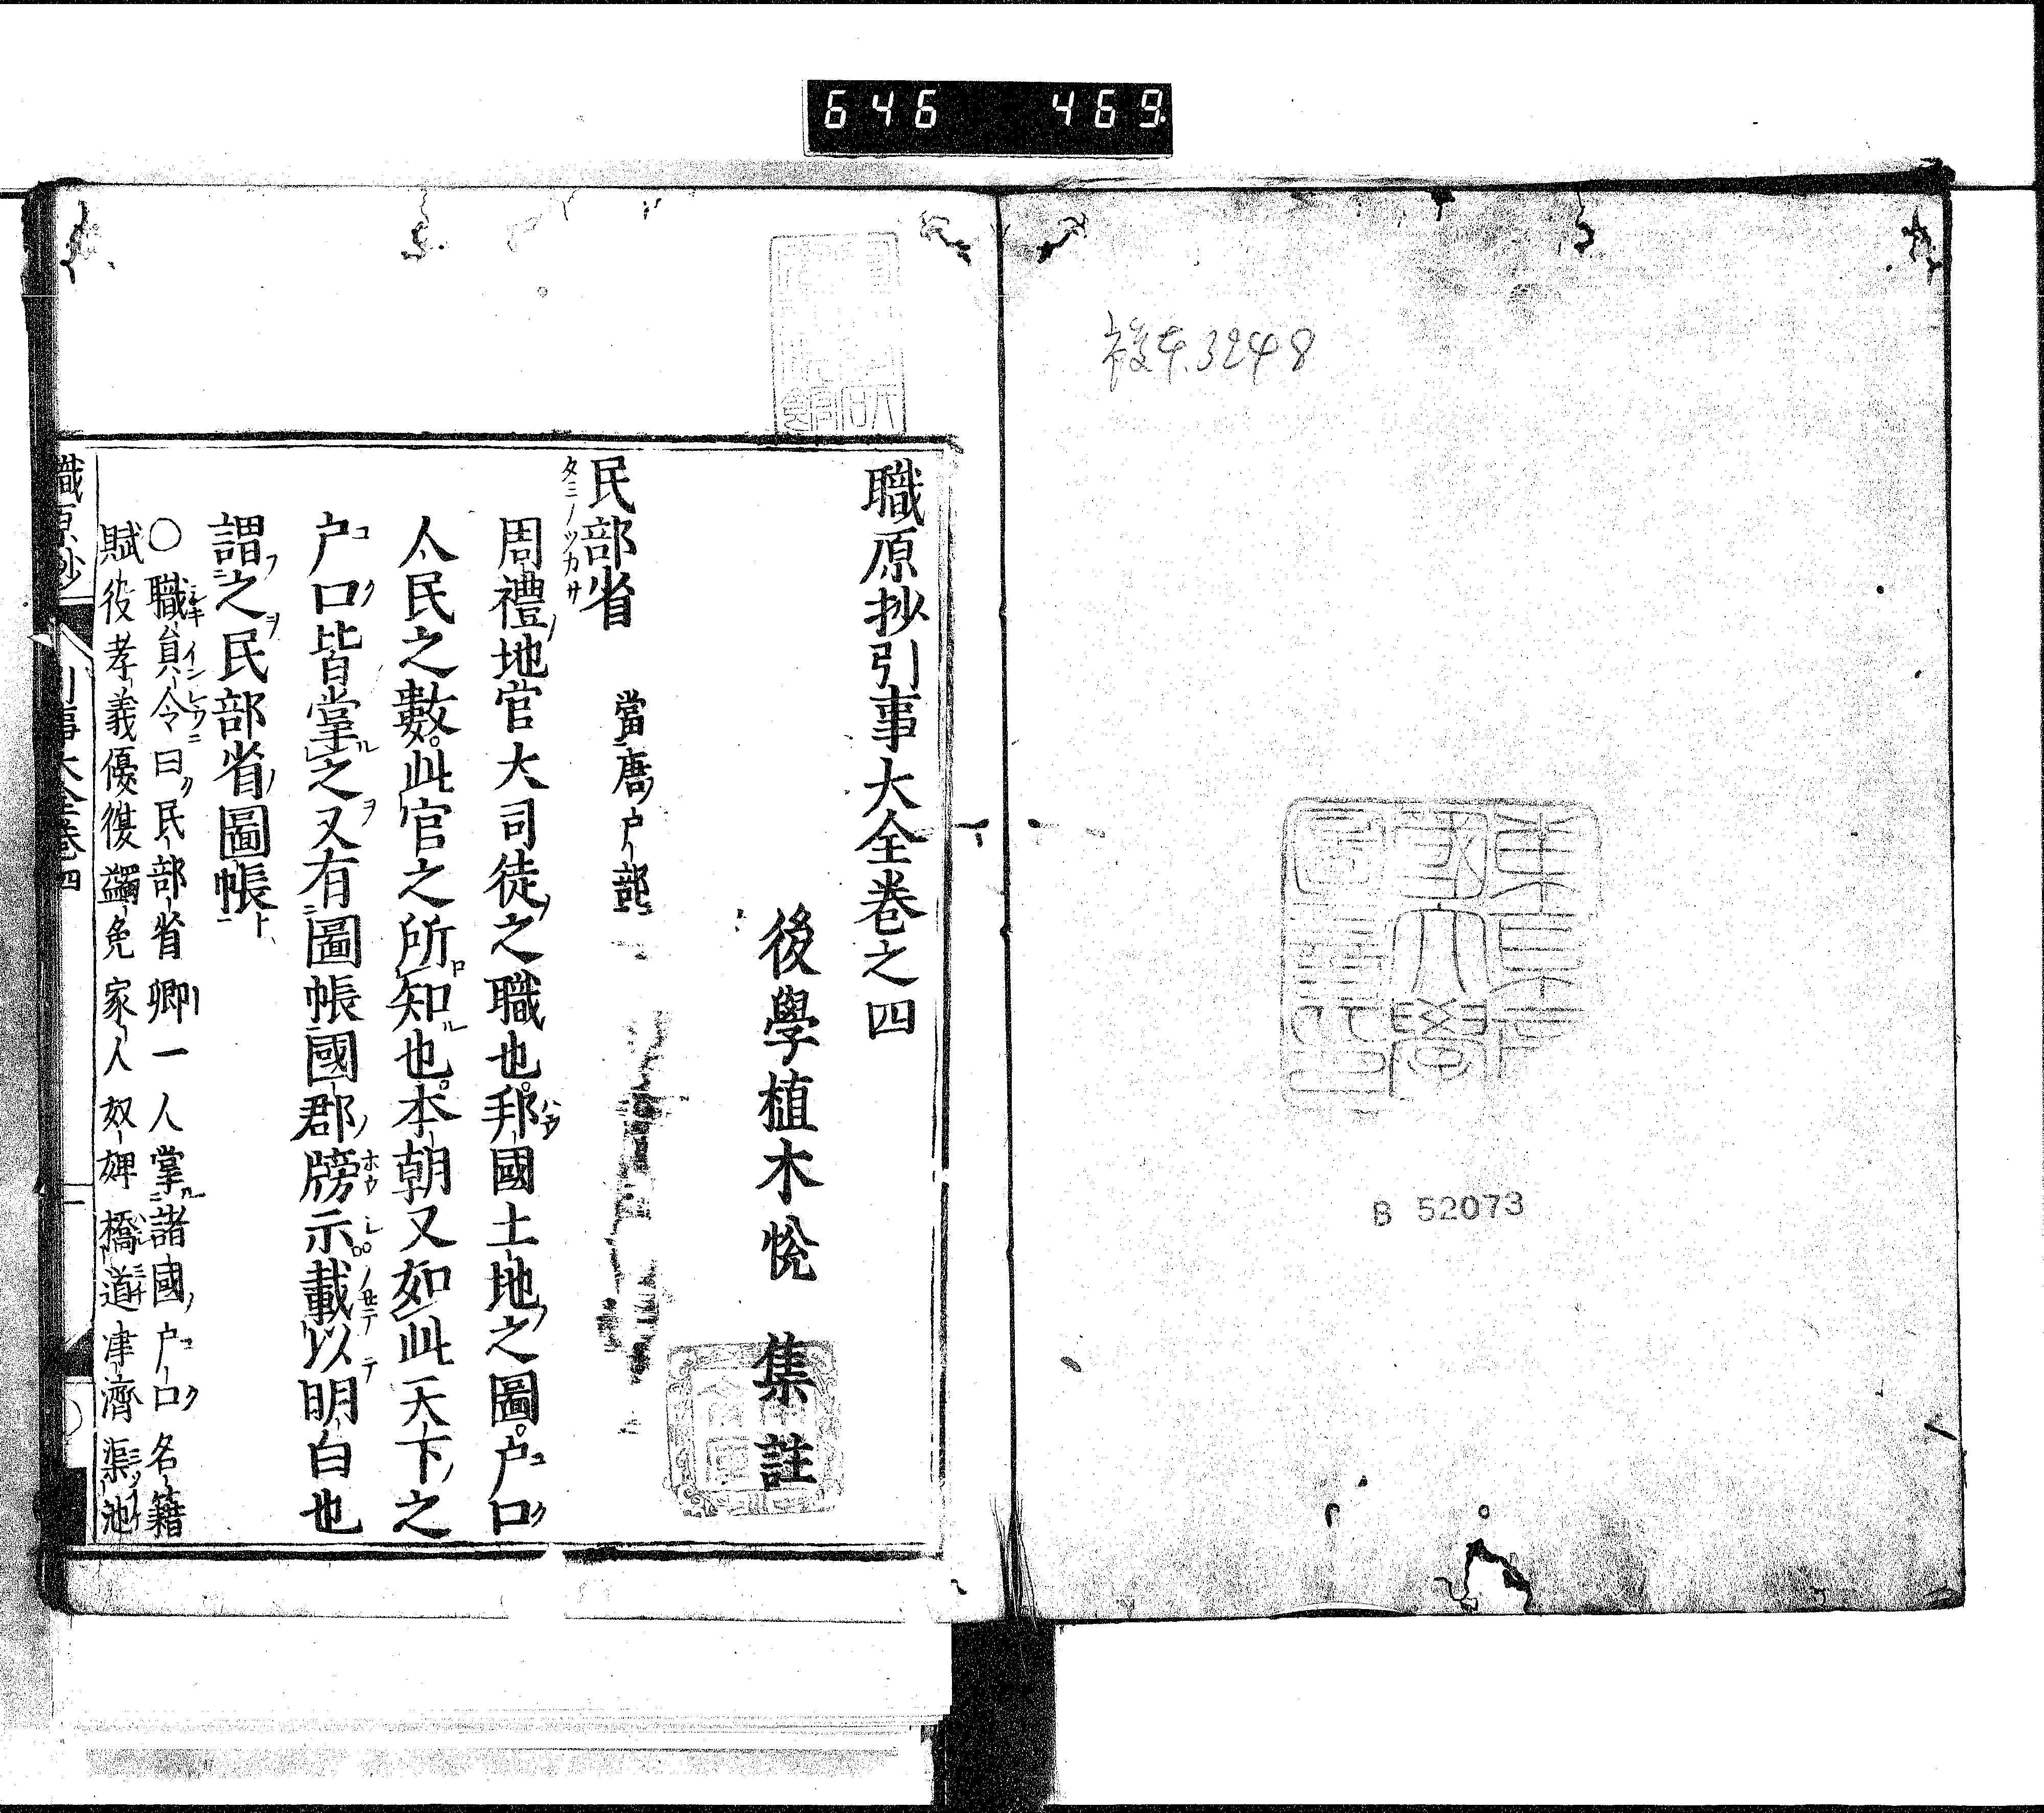 646 469
複本.3248
東京
帝國大學
圖書印
B 52073
職原抄引事大全卷之四
後學植木悅 集註
民部省 當唐戸部
タミノツカサ
周禮地官大司徒之職也邦國土地之圖戸口
人民之數此官之所知也本朝又如此天下之
戸口皆掌之又有圖帳國郡牓示載以明白也
謂之民部省圖帳
○職員令曰民部省卿一人掌諸國戸口名籍
賦役孝義優復蠲免家人奴婢橋道津濟渠池
職原抄 引事大全卷四